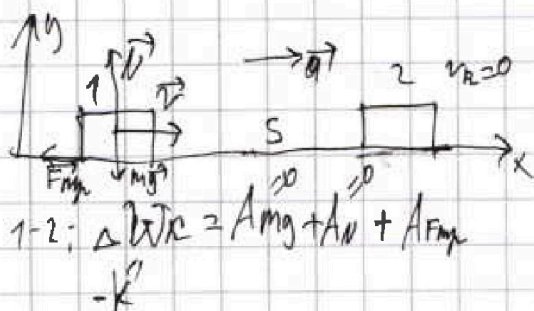 y
1 N v → a 2 vк=0
S
Fтр mg x
=0 =0
1-2: ΔWк = Amg + AN + AFтр
-K